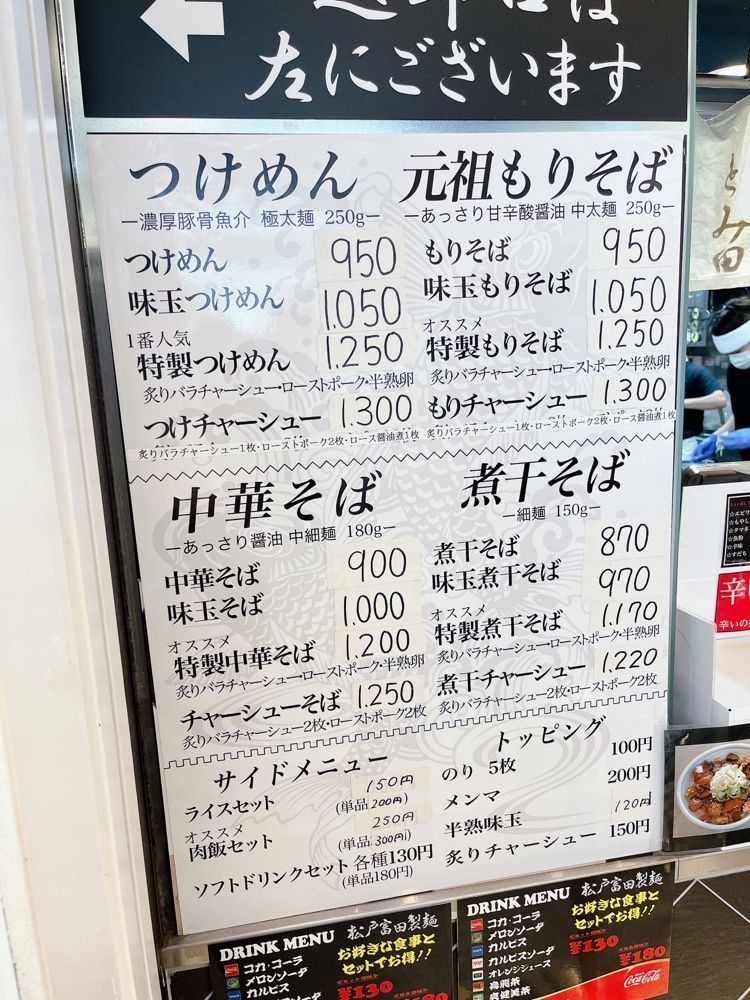 左にございます
つけめん
ー濃厚豚骨魚介 極太麺 250gー
つけめん 950
味玉つけめん 1.050
1番人気
特製つけめん 1.250
炙りバラチャーシュー・ローストポーク・半熟卵
つけチャーシュー 1.300
炙りバラチャーシュー1枚・ローストポーク2枚・ロース醤油煮1枚
元祖もりそば
ーあっさり甘辛酸醤油 中太麺 250gー
もりそば 950
味玉もりそば 1.050
オススメ
特製もりそば 1.250
炙りバラチャーシュー・ローストポーク・半熟卵
もりチャーシュー 1.300
炙りバラチャーシュー1枚・ローストポーク2枚・ロース醤油煮1枚
中華そば
ーあっさり醤油 中細麺 180gー
中華そば 900
味玉そば 1.000
オススメ
特製中華そば 1.200
炙りバラチャーシュー・ローストポーク・半熟卵
チャーシューそば 1.250
炙りバラチャーシュー2枚・ローストポーク2枚
煮干そば
ー細麺 150gー
煮干そば 870
味玉煮干そば 970
オススメ
特製煮干そば 1.170
炙りバラチャーシュー・ローストポーク・半熟卵
煮干チャーシュー 1.220
炙りバラチャーシュー2枚・ローストポーク2枚
サイドメニュー
ライスセット 150円
(単品200円)
オススメ
肉飯セット 250円
(単品300円)
ソフトドリンクセット 各種130円
(単品180円)
トッピング
のり 5枚 100円
メンマ 200円
半熟味玉 120円
炙りチャーシュー 150円
とみ田
DRINK MENU 松戸富田製麺
コカ・コーラ
メロンソーダ
カルピス
お好きな食事と
セットでお得!!
¥130
DRINK MENU 松戸富田製麺
コカ・コーラ
メロンソーダ
カルピス
カルピスソーダ
オレンジジュース
烏龍茶
爽健美茶
お好きな食事と
セットでお得!!
¥130
¥180
Coca-Cola